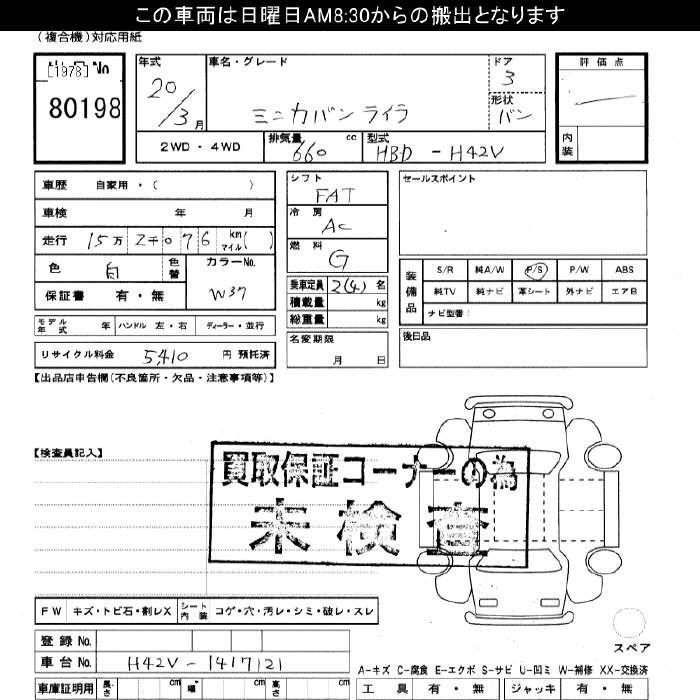 この車両は日曜日AM8:30からの搬出となります
(複合機)対応用紙
[1978] No
80198
年式
20/3月
車名・グレード
ミニカバン ライラ
ドア
3
形状
バン
評価点
内装
2WD・4WD
排気量 660 cc
型式 HBD - H42V
車歴 自家用・( )
車検 年 月
走行 15万 2千 0 7 6 km マイル( )
色 白 色替
カラーNo.
W37
保証書 有・無
シフト
FAT
冷房
AC
燃料
G
乗車定員 2(4) 名
積載量 kg
総重量 kg
名変期限
月 日
セールスポイント
装備品
S/R 純A/W P/S P/W ABS
純TV 純ナビ 革シート 外ナビ エアB
ナビ型番:
後日品
モデル年式 年 ハンドル 左・右 ディーラー・並行
リサイクル料金 5,410 円 預託済
【出品店申告欄(不良箇所・欠品・注意事項等)】
【検査員記入】
買取保証コーナーの為
未検査
FW キズ・トビ石・割レX シート内装 コゲ・穴・汚レ・シミ・破レ・スレ
スペア
登録No.
車台No. H42V-1417121
A-キズ C-腐食 E-エクボ S-サビ U-凹ミ W-補修 XX-交換済
車庫証明用 長さ cm 幅 cm 高さ cm
工具 有・無 ジャッキ 有・無